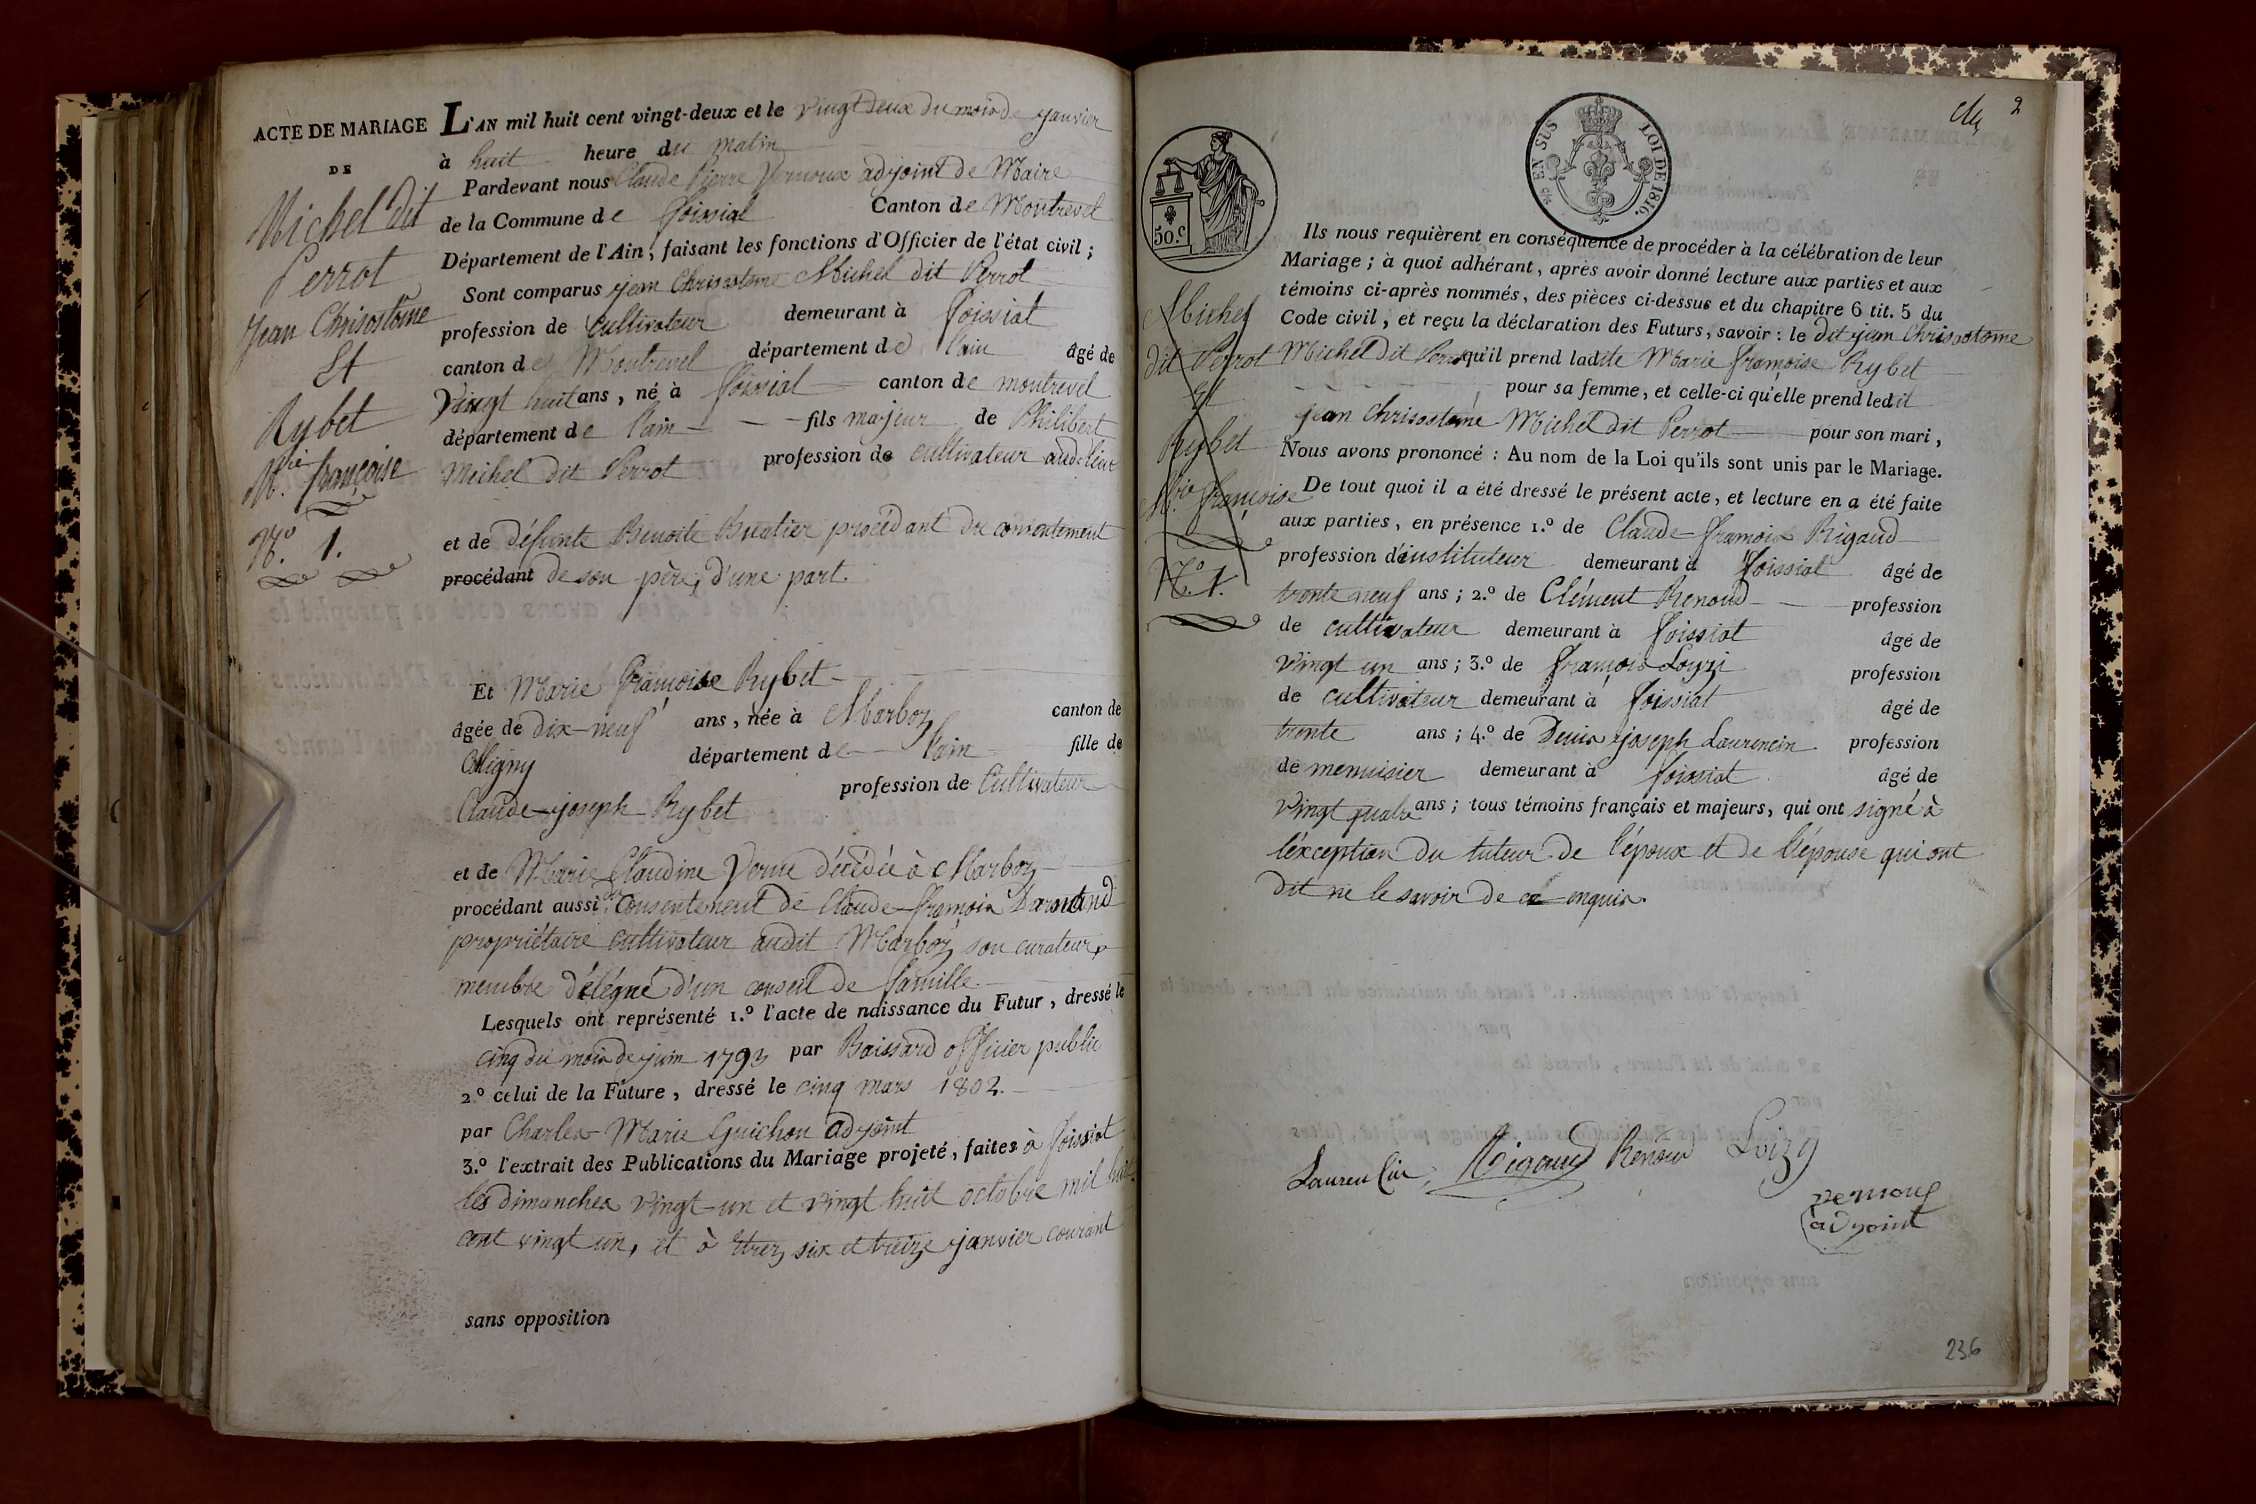 ACTE DE MARIAGE
DE
Michel dit
Perrot
Jean Chrisostôme
Et
Rybet
M.rie françoise
N.º 1.
L'AN mil huit cent vingt-deux et le vingt deux du mois de janvier
à huit heure du matin
Pardevant nous Claude Pierre Vernoux adjoint de Maire
de la Commune de foissiat Canton de Montrevel
Département de l'Ain, faisant les fonctions d'Officier de l'état civil ;
Sont comparus jean Chrisostome Michel dit Perrot
profession de cultivateur demeurant à foissiat
canton de Montrevel département de l'ain âgé de
vingt huit ans, né à foissiat canton de montrevel
département de l'ain fils majeur de Philibert
Michel dit Perrot profession de cultivateur aud. lieu
et de défunte Benoite procédant du consentement
procédant de son père, d'une part.
Et Marie françoise Rybet
âgée de dix-neuf ans, née à Marboz canton de
Colligny département de l'ain fille de
Claude-joseph Rybet profession de Cultivateur
et de Marie Claudine Verne décédée à Marboz
procédant aussi du consentement de Claude-françois
propriétaire cultivateur audit Marboz, son curateur
membre délégué d'un conseil de famille
Lesquels ont représenté 1.º l'acte de naissance du Futur, dressé le
cinq du mois de juin 1793 par Boissard officier public
2.º celui de la Future, dressé le cinq mars 1802.
par Charles-Marie Guichon adjoint
3.º l'extrait des Publications du Mariage projeté, faites à foissiat
les dimanches vingt-un et vingt huit octobre mil huit
cent vingt un, et à étrez six et treize janvier courant
sans opposition
50.c
EN SUS
LOI DE 1816.
2
Michel
dit Perrot
Et
Rybet
M.rie françoise
N.º 1.
Ils nous requièrent en conséquence de procéder à la célébration de leur
Mariage ; à quoi adhérant, après avoir donné lecture aux parties et aux
témoins ci-après nommés, des pièces ci-dessus et du chapitre 6 tit. 5 du
Code civil, et reçu la déclaration des Futurs, savoir : le dit jean Chrisostome
Michel dit Perrot qu'il prend ladite Marie françoise Rybet
pour sa femme, et celle-ci qu'elle prend ledit
jean chrisostome Michel dit Perrot pour son mari,
Nous avons prononcé : Au nom de la Loi qu'ils sont unis par le Mariage.
De tout quoi il a été dressé le présent acte, et lecture en a été faite
aux parties, en présence 1.º de Claude-françois Rigaud
profession d'instituteur demeurant à foissiat âgé de
trente neuf ans ; 2.º de Clément Renoud profession
de cultivateur demeurant à foissiat âgé de
vingt un ans ; 3.º de françois Loyzi profession
de cultivateur demeurant à foissiat âgé de
trente ans ; 4.º de Denis joseph Laurencin profession
de menuisier demeurant à foissiat âgé de
vingt quatre ans ; tous témoins français et majeurs, qui ont signé à
l'exception du tuteur de l'époux et de l'épouse qui ont
dit ne le savoir de ce enquis.
Laurencin Rigaud Renoud Loizy
vernoux
adjoint
236